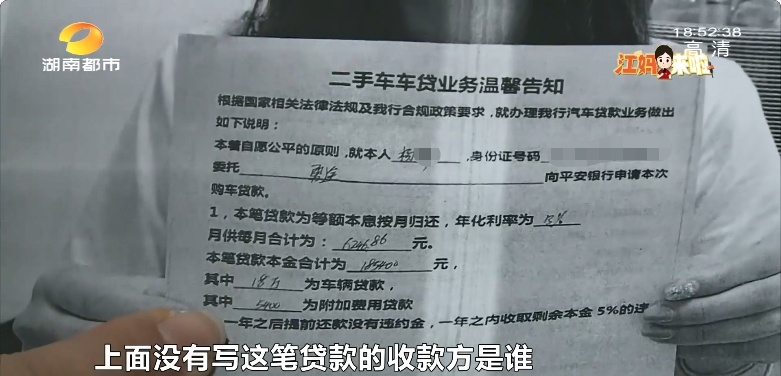 湖南都市
18:52:38
高清
江妈来啦
二手车车贷业务温馨告知
根据国家相关法律法规及我行合规政策要求，就办理我行汽车贷款业务做出
如下说明：
本着自愿公平的原则，就本人 杨 ，身份证号码
委托 向平安银行申请本次
购车贷款。
1，本笔贷款为等额本息按月归还，年化利率为 13%
月供每月合计为： 6246.86 元。
本笔贷款本金合计为 185400 元，
其中 18万 为车辆贷款，
其中 5400 为附加费用贷款
一年之后提前还款没有违约金，一年之内收取剩余本金5%的违
上面没有写这笔贷款的收款方是谁